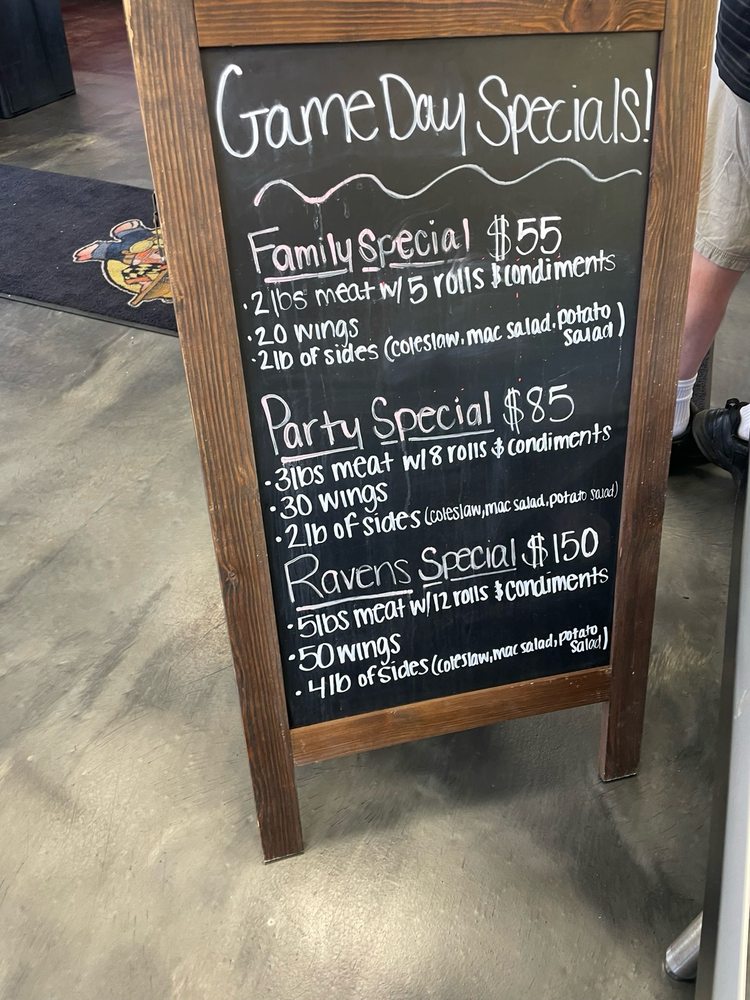 Game Day Specials!
Family Special $55
• 2lbs meat w/ 5 rolls & condiments
• 20 wings
• 2lb of sides (coleslaw, mac salad, potato
salad)
Party Special $85
• 3lbs meat w/ 8 rolls & condiments
• 30 wings
• 2lb of sides (coleslaw, mac salad, potato salad)
Ravens Special $150
• 5lbs meat w/ 12 rolls & condiments
• 50 wings
• 4lb of sides (coleslaw, mac salad, potato
salad)